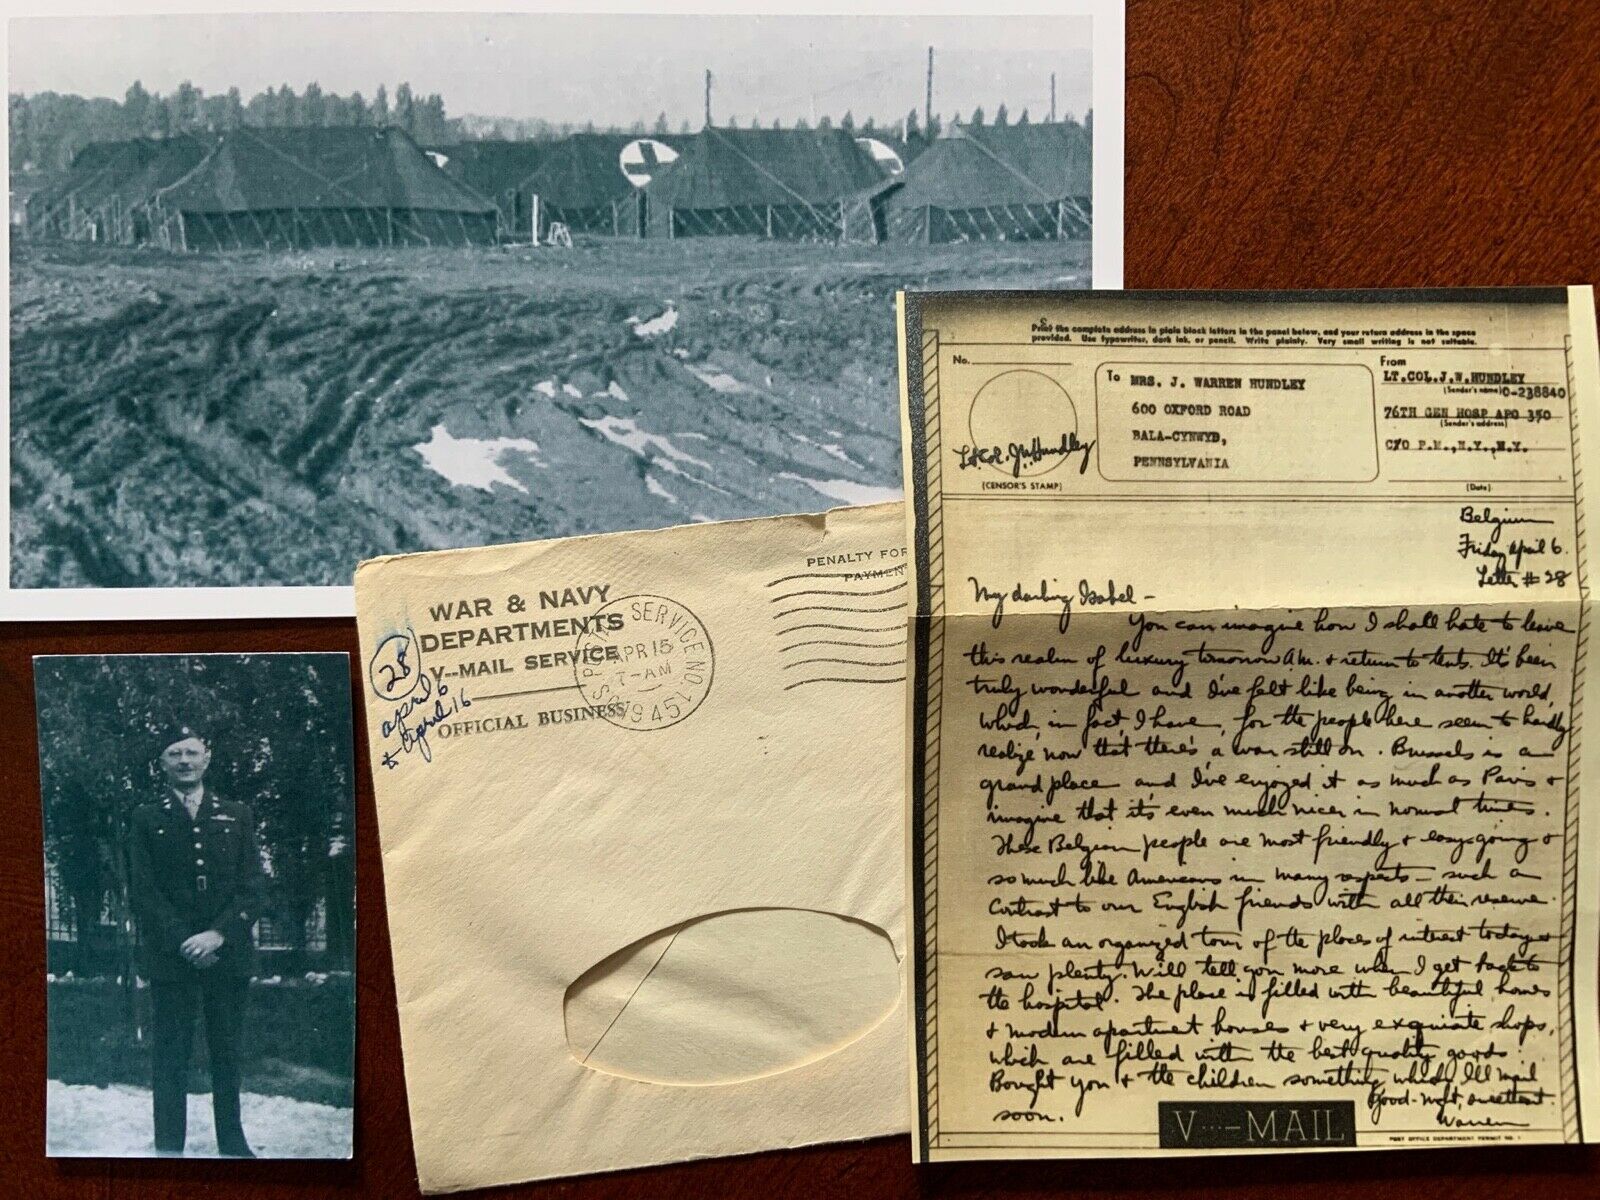 WAR & NAVY
DEPARTMENTS
V--MAIL SERVICE
OFFICIAL BUSINESS
28
april 6
April 16
U.S. POSTAL SERVICE NO. 1
APR 15
7-AM
1945
PENALTY FOR
PAYMEN
Print the complete address in plain block letters in the panel below, and your return address in the space
provided. Use typewriter, dark ink, or pencil. Write plainly. Very small writing is not suitable.
No.
Lt Col. JWHundley
(CENSOR'S STAMP)
To MRS. J. WARREN HUNDLEY
600 OXFORD ROAD
BALA-CYNWYD,
PENNSYLVANIA
From
LT.COL.J.W.HUNDLEY
(Sender's name) O-238840
76TH GEN HOSP APO 350
(Sender's address)
C/O P.M.,N.Y.,N.Y.
(Date)
Belgium
Friday April 6.
Letter # 28
My darling Isabel —
You can imagine how I shall hate to leave
this realm of luxury tomorrow A.M. & return to tents. It's been
truly wonderful and I've felt like being in another world,
which, in fact, I have, for the people here seem to hardly
realize now that there's a war still on. Brussels is a
grand place and I've enjoyed it as much as Paris &
imagine that it's even much nicer in normal times.
These Belgian people are most friendly & easy-going &
so much like Americans in many respects — such a
contrast to our English friends with all their reserve.
I took an organized tour of the places of interest today &
saw plenty. Will tell you more when I get back to
the hospital. The place is filled with beautiful homes
& modern apartment houses & very exquisite shops,
which are filled with the best quality goods.
Bought you & the children something which I'll mail
soon.
Good-night, sweetheart.
Warren
V···—MAIL
POST OFFICE DEPARTMENT PERMIT NO. 1